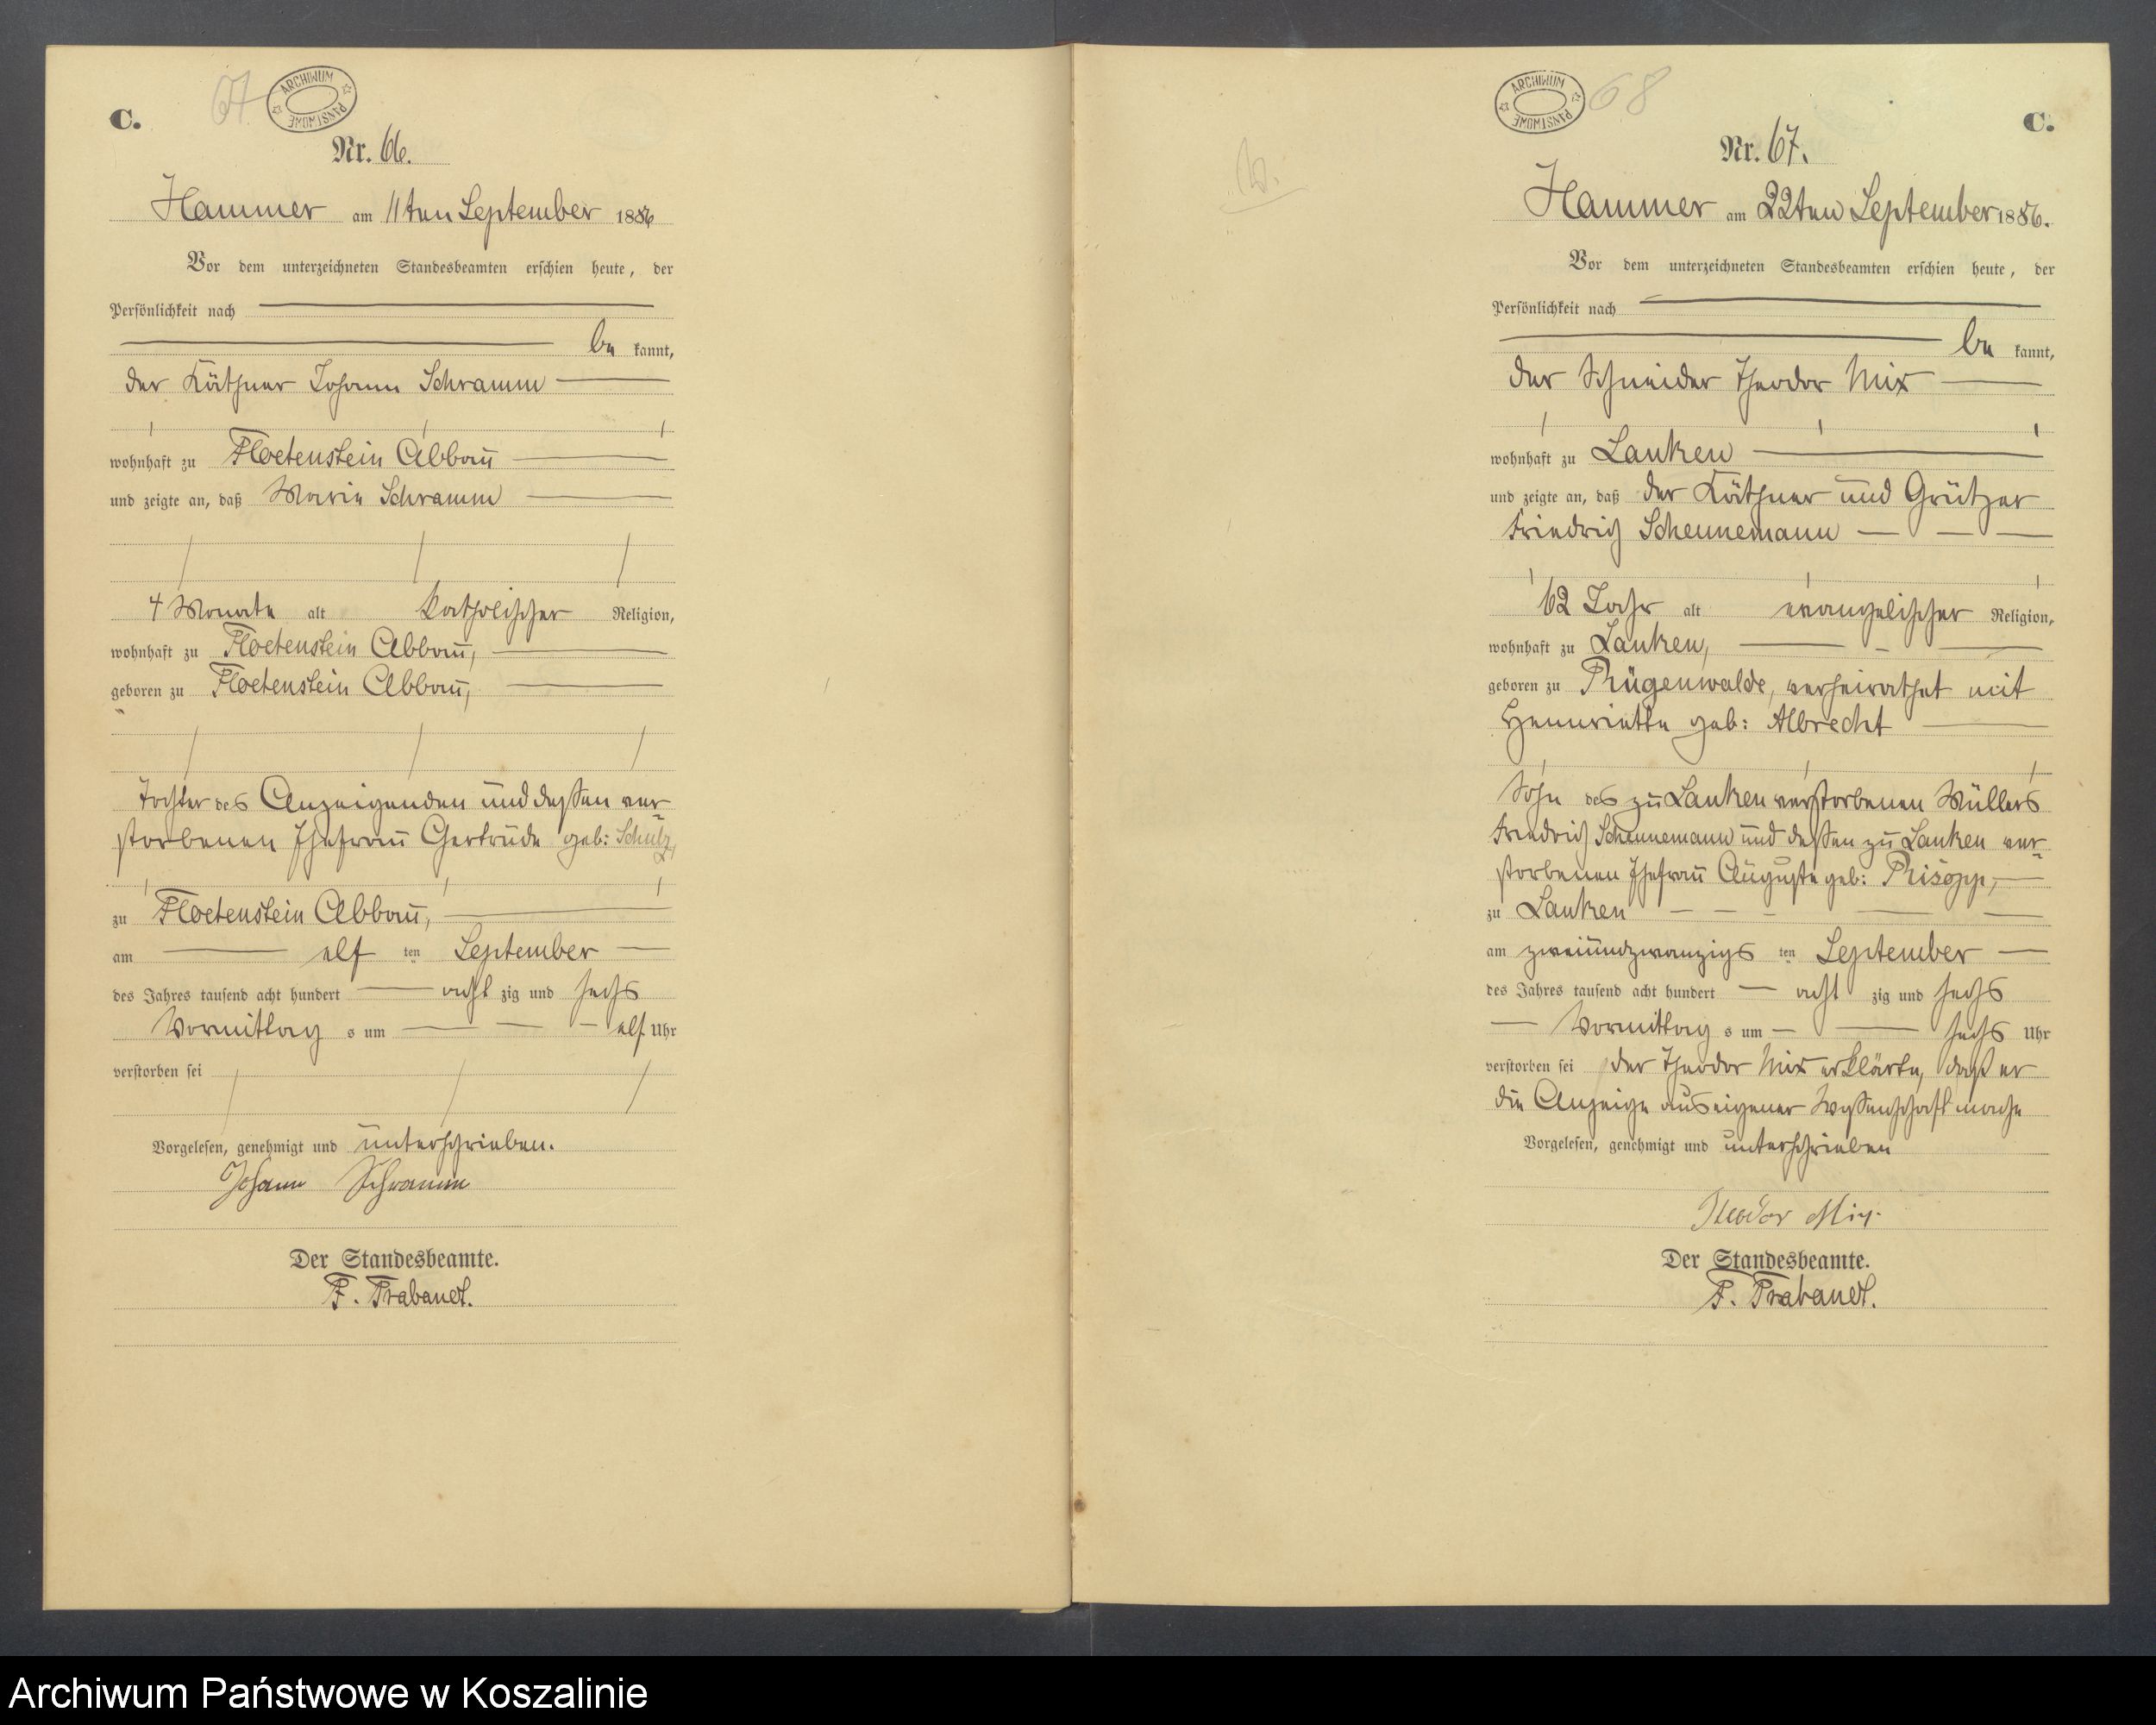 C.
67
ARCHIWUM PAŃSTWOWE
Nr. 66.
Hammer am 11ten September 1886
Vor dem unterzeichneten Standesbeamten erschien heute, der
Persönlichkeit nach
be kannt,
der Käthner Johann Schramm
wohnhaft zu Floetenstein Abbau
und zeigte an, daß Marie Schramm
4 Monate alt katholischer Religion,
wohnhaft zu Floetenstein Abbau,
geboren zu Floetenstein Abbau,
Tochter des Anzeigenden und dessen ver-
storbenen Ehefrau Gertrude geb: Schulz,
zu Floetenstein Abbau,
am elf ten September
des Jahres tausend acht hundert acht zig und sechs
Vormittag s um elf Uhr
verstorben sei
Vorgelesen, genehmigt und unterschrieben.
Johann Schramm
Der Standesbeamte.
F. Trabandt.
ARCHIWUM PAŃSTWOWE
68
C.
Nr. 67.
Hammer am 22ten September 1886.
Vor dem unterzeichneten Standesbeamten erschien heute, der
Persönlichkeit nach
be kannt,
der Schneider Theodor Mix
wohnhaft zu Lanken
und zeigte an, daß der Käthner und Grützer
Friedrich Schennemann
62 Jahr alt evangelischer Religion,
wohnhaft zu Lanken,
geboren zu Rügenwalde, verheirathet mit
Hennriette geb: Albrecht
Sohn des zu Lanken verstorbenen Müllers
Friedrich Schennemann und dessen zu Lanken ver-
storbenen Ehefrau Auguste geb:
zu Lanken
am zweiundzwanzigs ten September
des Jahres tausend acht hundert acht zig und sechs
Vormittag s um sechs Uhr
verstorben sei der Theodor Mix erklärte, daß er
die Anzeige aus eigener Wissenschaft mache
Vorgelesen, genehmigt und unterschrieben
Theodor Mix.
Der Standesbeamte.
F. Trabandt.
Archiwum Państwowe w Koszalinie